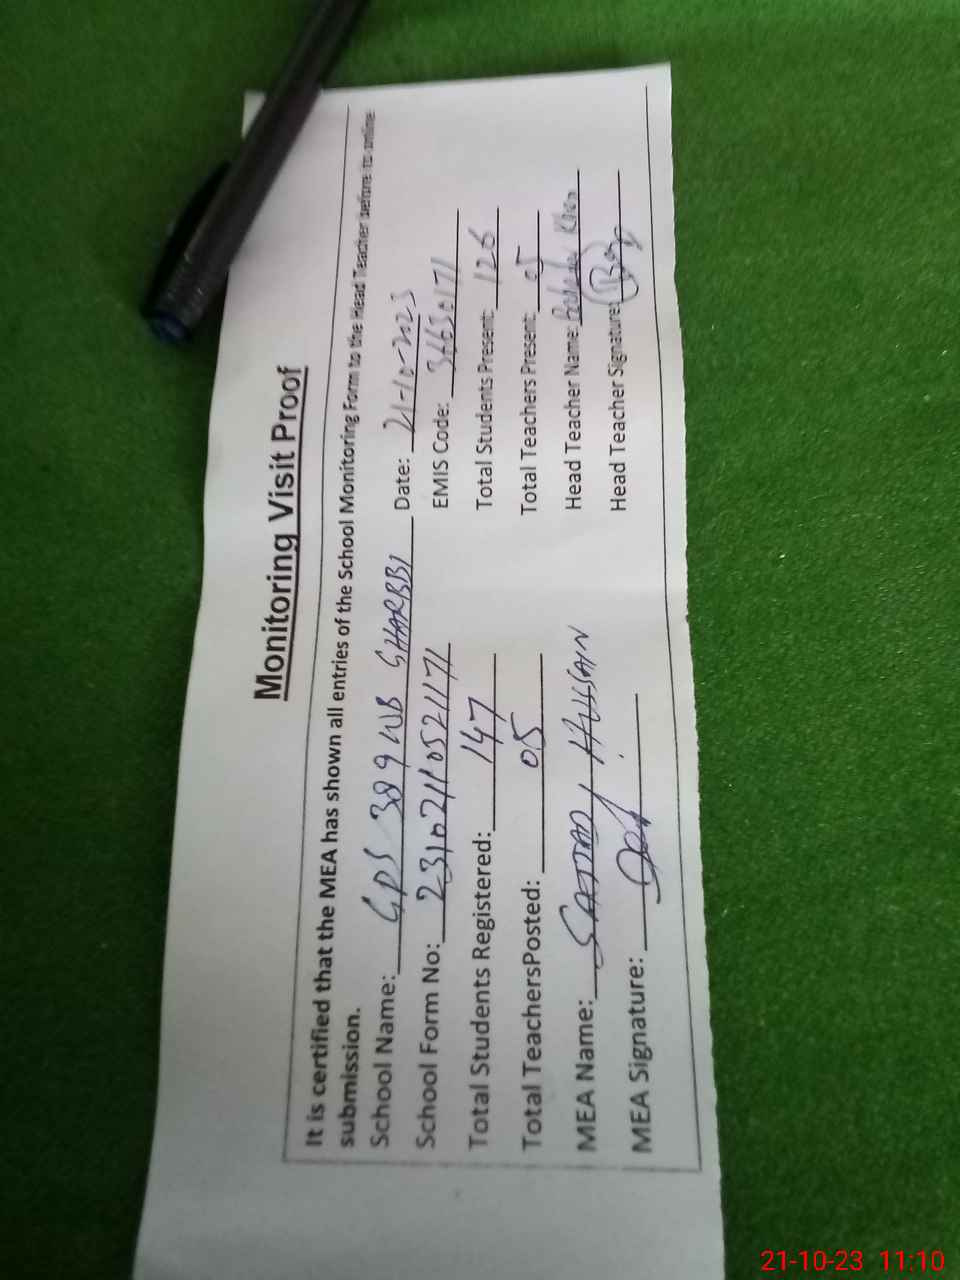 Monitoring Visit Proof
It is certified that the MEA has shown all entries of the School Monitoring Form to the Head Teacher before to online
submission.
School Name: GPS 389 WB SHARBBI Date: 21-10-2023
School Form No: 23102110521171 EMIS Code:
Total Students Registered: 147 Total Students Present: 126
Total TeachersPosted: 05 Total Teachers Present: 05
MEA Name: SAJJAD HUSSAIN Head Teacher Name: Khan
MEA Signature: Head Teacher Signature:
21-10-23 11:10